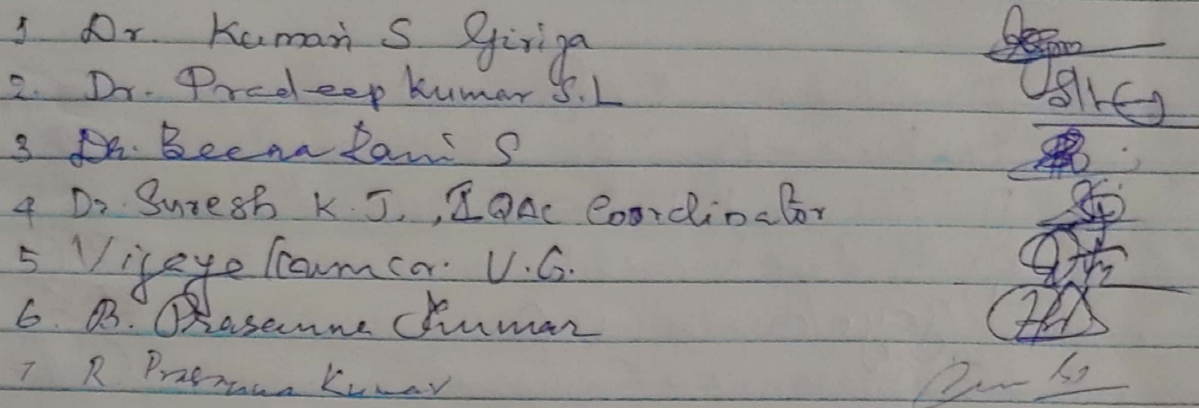 1 Dr. Kumari S Girija
2. Dr. Pradeep Kumar S.L
3 Dr. Beena Rani S
4 Dr. Suresh K.J., IQAC Coordinator
5 Vijayakumar. V.G.
6. B. Prasanna Kumar
7 R Prasanna Kumar